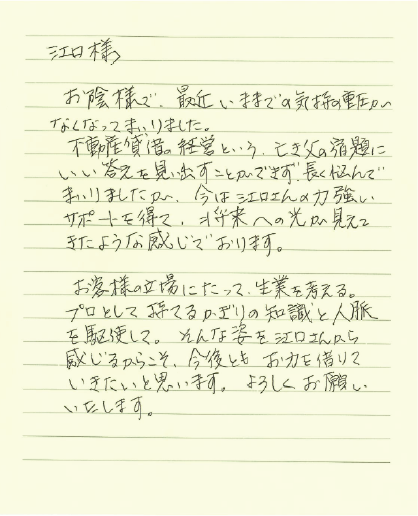 江口様
お陰様で、最近いままでの気持の重圧が
なくなってまいりました。
不動産賃借の経営という、亡き父の宿題に
いい答えを見い出すことができず、長く悩んで
まいりましたが、今は江口さんの力強い
サポートを得て、将来への光が見えて
きたような感じであります。
お客様の立場にたって、生業を考える。
プロとして持てるかぎりの知識と人脈
を駆使して。そんな姿を江口さんから
感じるからこそ、今後とも お力を借りて
いきたいと思います。よろしくお願い
いたします。